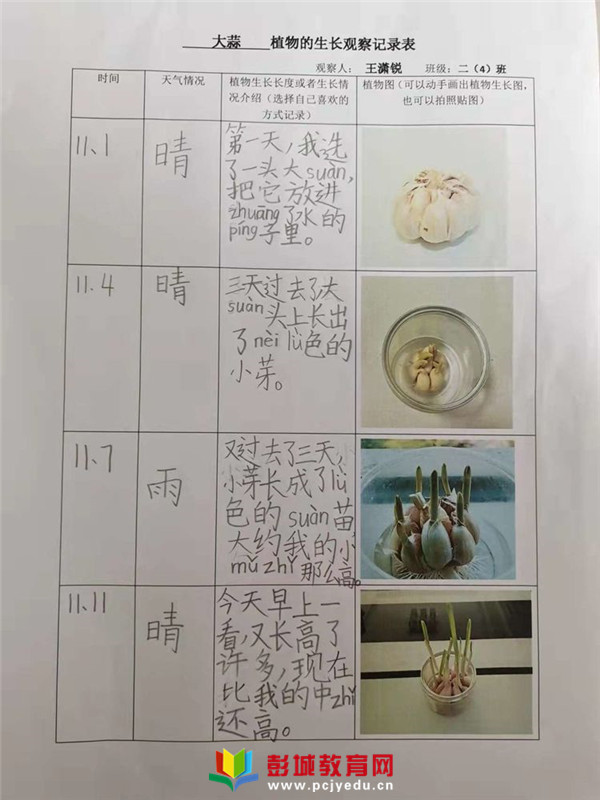 大蒜 植物的生长观察记录表
观察人： 王潇锐 班级：二（4）班
时间
天气情况
植物生长长度或者生长情
况介绍（选择自己喜欢的
方式记录）
植物图（可以动手画出植物生长图，
也可以拍照贴图）
11、1
晴
第一天，我选
了一头大suàn，
把它放进
zhuāng了水的
píng子里。
11.4
晴
三天过去了大
suàn头上长出
了nèi lǜ色的
小芽。
11、7
雨
又过去了三天，小
小芽长成了lǜ
色的suàn苗，
大约我的小
mǔ zhǐ那么高。
11.11
晴
今天早上一
看，又长高了
许多，现在
比我的中zhǐ
还高。
彭城教育网
www.pcjyedu.cn